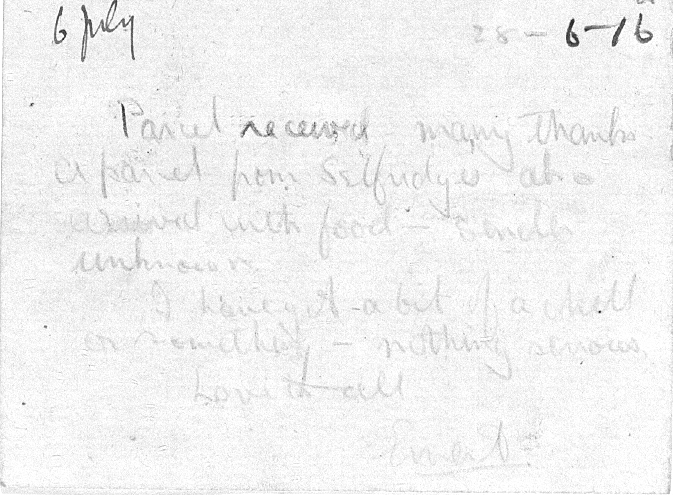 6 July
28-6-16
Parcel received - many thanks
A parcel from Selfridges also
arrived with food - sender
unknown.
I have got a bit of a chill
or something - nothing serious.
Love to all
Ernest